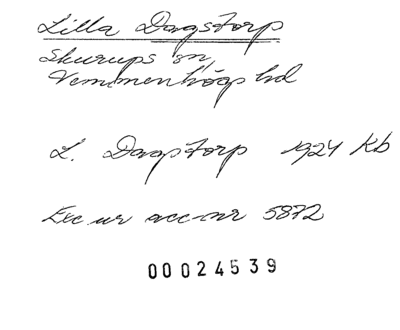 Lilla Dagstorp
Skurups sn,
Vemmenhögs hd
L. Dagstorp 1924 Kb
Exc ur acc-nr 5872
00024539